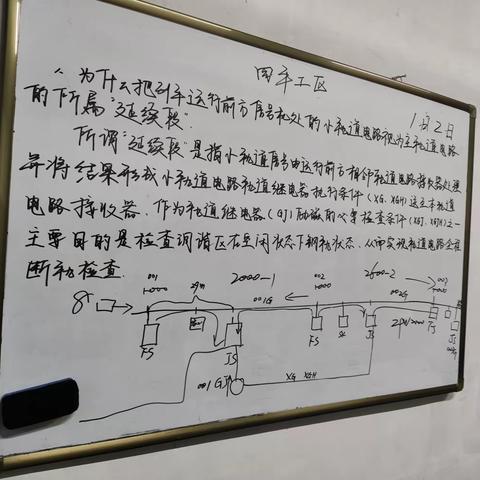 周车工区
1月2日
"为什么把列车运行前方信号机处的小轨道电路视为主轨道电路
的所属"延续段".
所谓"延续段"是指小轨道信号由运行前方相邻轨道电路接收器处理
并将结果形成小轨道电路轨道继电器执行条件(XG、XGH)送至本轨道
电路接收器、作为轨道继电器(GJ)励磁的必要检查条件(XGJ、XGJH)之一
主要目的是检查调谐区在空闲状态下断轨状态、从而实现轨道电路全程
断轨检查.
001 29m 2000-1 002 2600-2 003
001G 002G
FS JS FS JS FS JS
001GJ XG XGH